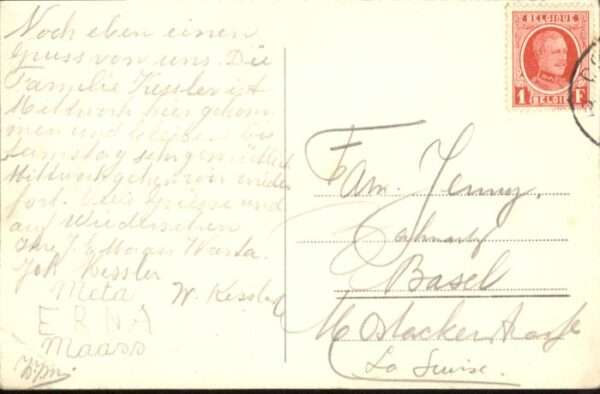 Noch eben einen
Gruss von uns. Die
Familie Kessler ist
Mittwoch hier gekom
men und
Samstag sehr gemütlich
Mittwoch gehen wir wieder
fort. Viele Grüsse und
auf Wiedersehen
Ihre J. Maass
Joh Kessler
Meta W. Kessler
ERNA
Maass
BELGIQUE
1 F
BELGIE
Fam. Jenny,
Basel
Ostackerstrasse
La Suisse.